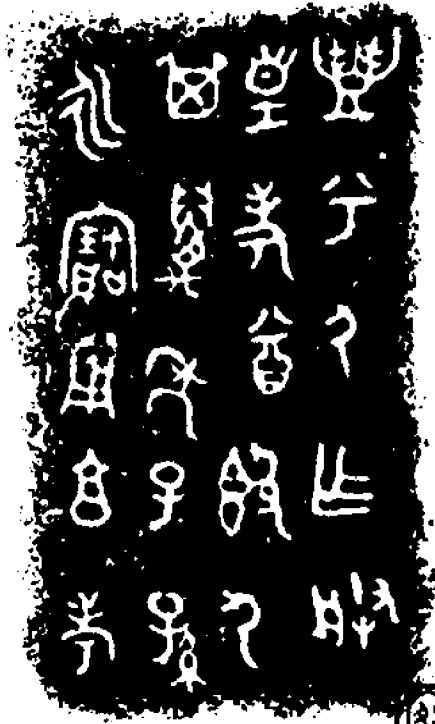 豐兮尸乍朕
皇考酋𣪘尸
其萬年子孫
永寶用亯考